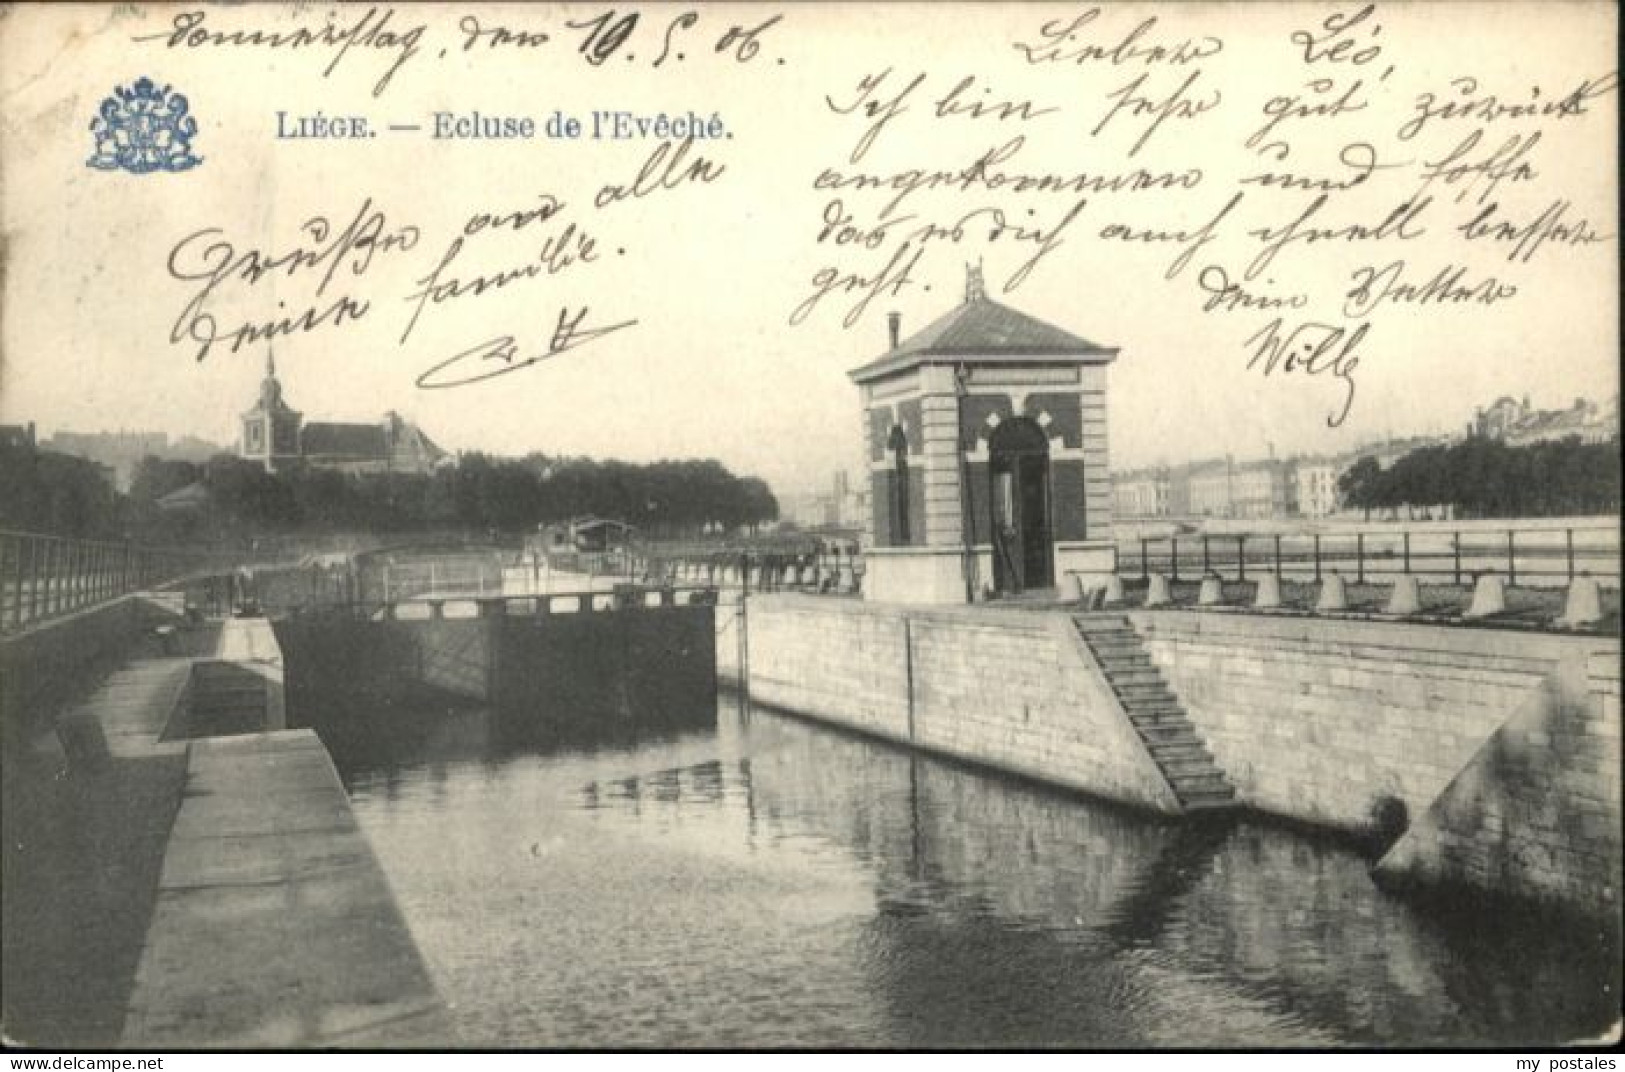 Donnerstag, den 10.5.06.
LIÉGE. — Ecluse de l'Evêché.
Lieber Léo,
Ich bin sehr gut zurück
angekommen und hoffe
das es dich auch schnell besser
geht.
Dein Vetter
Willy
Grüße an alle
deine familie.
my postales
delcampe.net/collections/luckystamps